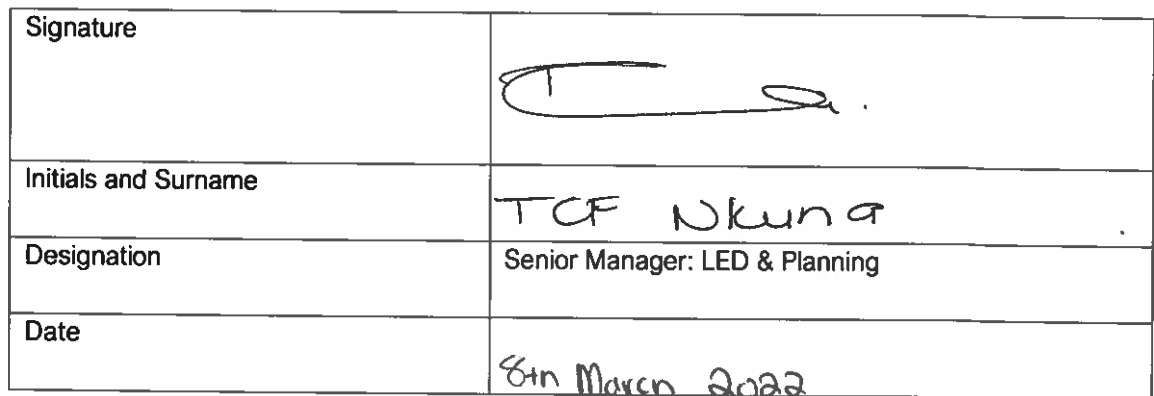 Signature
Initials and Surname
TCF Nkuna
Designation
Senior Manager: LED & Planning
Date
8th March 2022